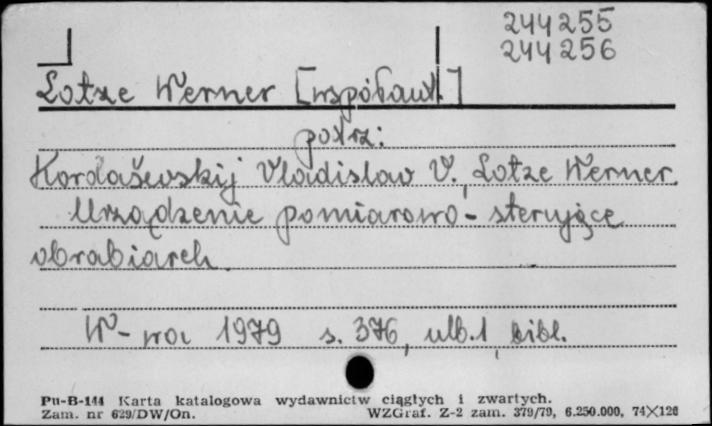 244255
244256
Lotze Werner [współaut.]
patrz:
Kordaševskij Vladislav V., Lotze Werner.
Urządzenie pomiarowo-sterujące
obrabiarek.
W-wa 1979 s. 376, ulb.1, bibl.
Pu-B-144 Karta katalogowa wydawnictw ciągłych i zwartych.
Zam. nr 629/DW/On. WZGraf. Z-2 zam. 379/79, 6.250.000, 74×120